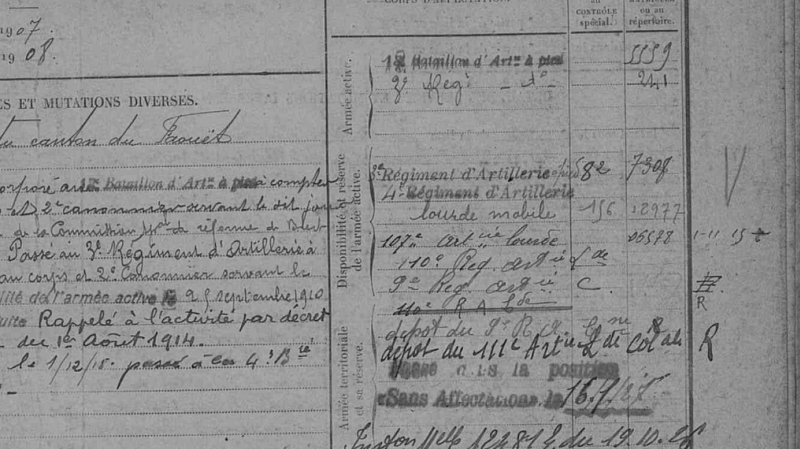 1907.
1908.
ES ET MUTATIONS DIVERSES.
du canton du Faouët
Bataillon d'Artie à pied à compter
et 2e canonnier servant le dit jour
de la Commission de réforme de
Passé au 3e Régiment d'Artillerie à
au corps et 2e Canonnier servant le
lité de l'armée active le 25 septembre 1910
Rappelé à l'activité par décret
du 1er Août 1914.
le 1/12/15 passé à la 4e Bie
CONTRÔLE
spécial.
ou au
répertoire.
Armée active.
Bataillon d'Artie à pied
5559
3e Regt - do -
241
Disponibilité et réserve
de l'armée active.
3e Régiment d'Artillerie à pied
582
7308
4e Régiment d'Artillerie
lourde mobile
156
12977
107e artie lourde
1-11 15
110e Reg artie lde
9e Reg artie C.
R
110e R A Lde
Armée territoriale
et sa réserve.
dépôt du 9e R.A. Cne R
dépôt du 111e Artie Lde Col ale
R
Passé dans la position
"Sans Affectation" le 16.7.27
du 19.10.